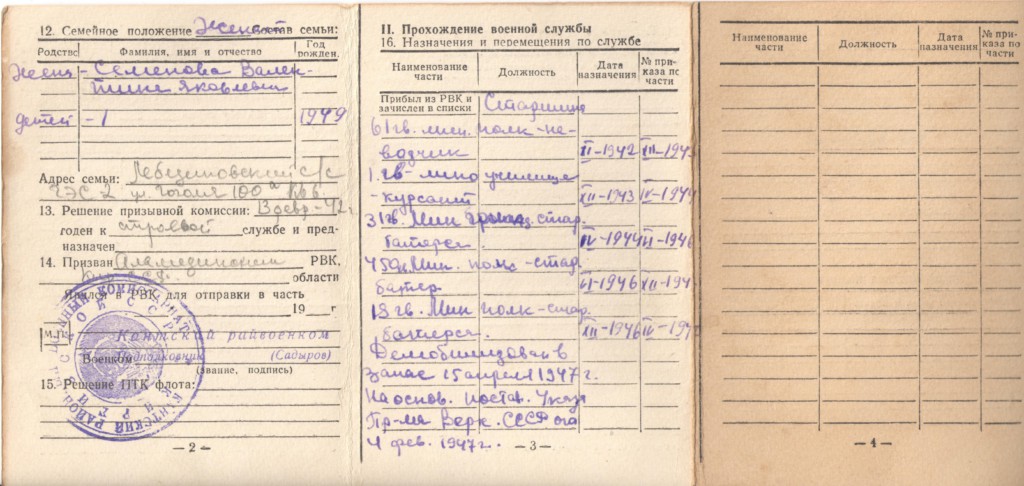 12. Семейное положение Женат состав семьи:
Родство Фамилия, имя и отчество Год рожден.
Жена - Семенова Вален-
тина Яковлевна
детей - 1 1949
Адрес семьи: Лебединовский с/с
ГЭС 2 ул. Гоголя 100а кв.
13. Решение призывной комиссии: 3 февр-42г.
годен к строевой службе и пред-
назначен
14. Призван РВК,
области
Явился в РВК для отправки в часть
19 г.
М. П.
Кантский райвоенком
Военком Подполковник (Садыров)
(звание, подпись)
15. Решение ПТК флота:
КАНТСКИЙ РАЙОН
— 2 —
II. Прохождение военной службы
16. Назначения и перемещения по службе
Наименование части Должность Дата назначения № приказа по части
Прибыл из РВК и зачислен в списки
61 гв. мин. полк-на-
водчик II-1942 XII-1943
1 гв- мино училище
-курсант XII-1943 IV-1944
31 гв. Мин стар.
батареи IV-1944 II-1946
Мин. полк-стар.
батер VI-1946 XII-1946
18 гв. Мин полк-стар.
батареи. XII-1946 IV-1947
Демобилизован в
Запас 15 апреля 1947 г.
На основ. постав. Указа
Пр-ма Верх. СССР от
4 фев. 1947 г.
— 3 —
Наименование части Должность Дата назначения № приказа по части
— 4 —